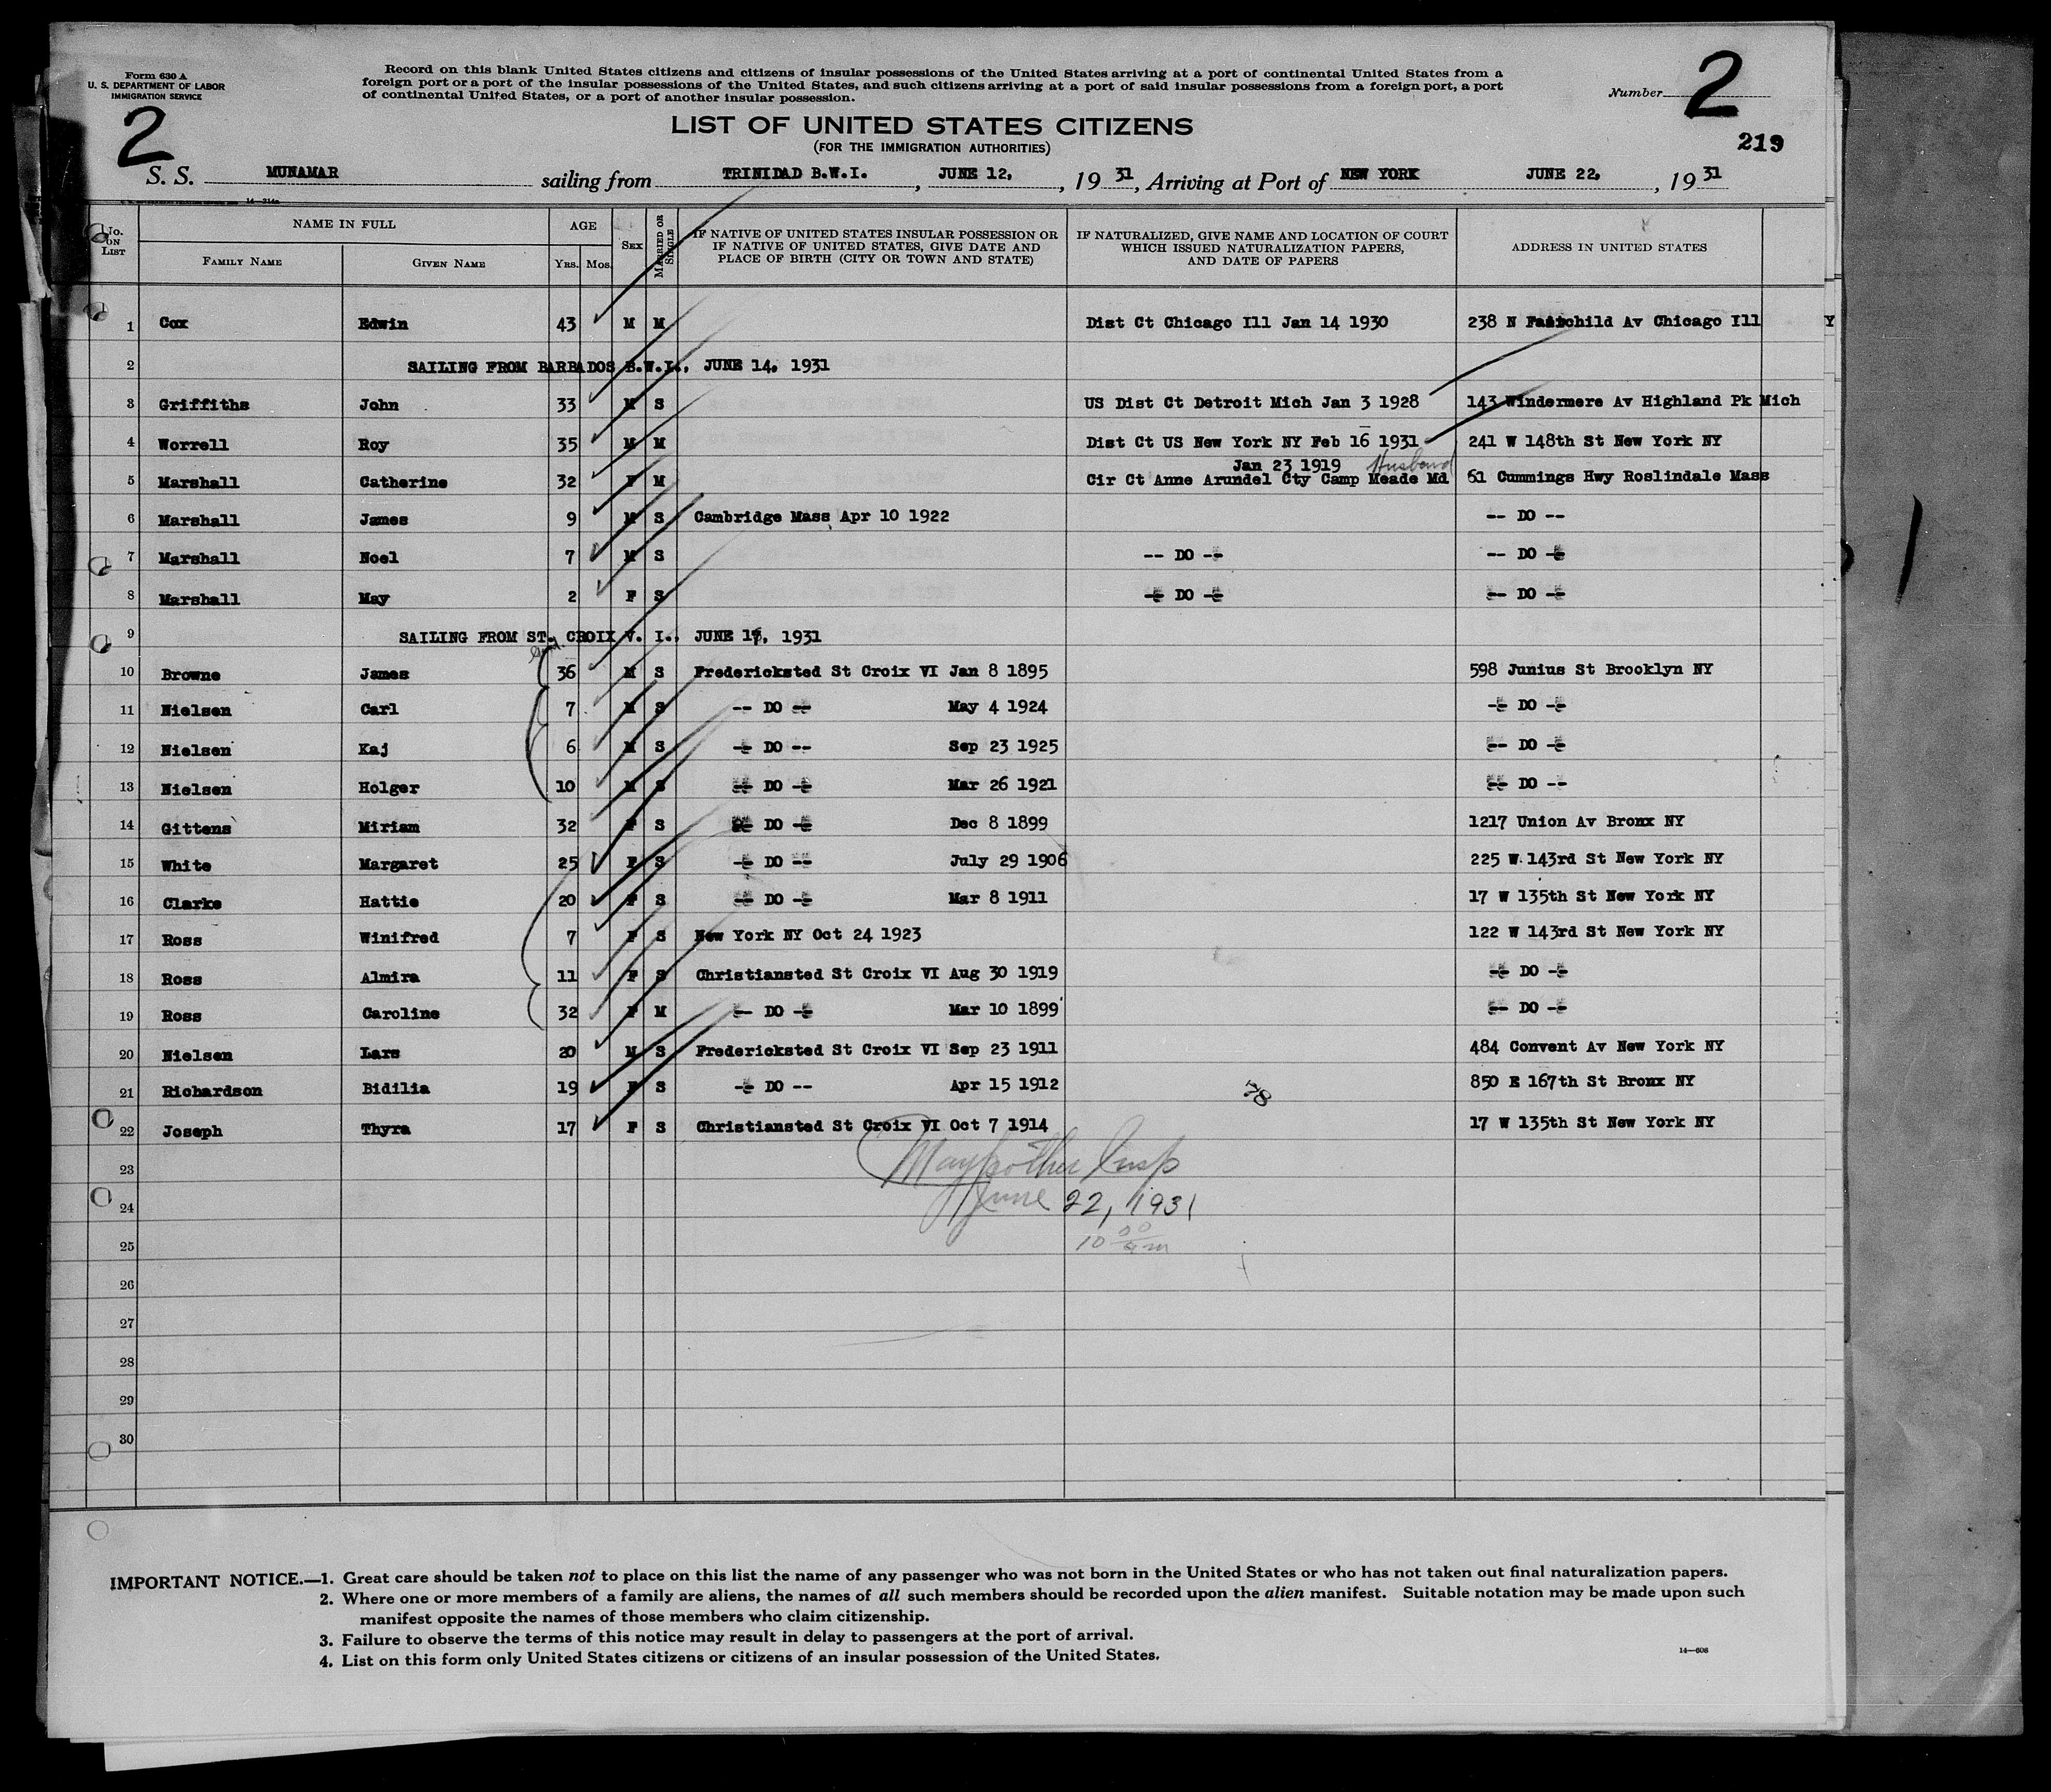 Form 630 A
U. S. DEPARTMENT OF LABOR
IMMIGRATION SERVICE
Record on this blank United States citizens and citizens of insular possessions of the United States arriving at a port of continental United States from a
foreign port or a port of the insular possessions of the United States, and such citizens arriving at a port of said insular possessions from a foreign port, a port
of continental United States, or a port of another insular possession.
Number 2
2
LIST OF UNITED STATES CITIZENS
(FOR THE IMMIGRATION AUTHORITIES)
219
S. S. MUNAMAR sailing from TRINIDAD B.W.I. , JUNE 12, , 19 31, Arriving at Port of NEW YORK JUNE 22, , 19 31
No. ON LIST NAME IN FULL FAMILY NAME GIVEN NAME AGE YRS. MOS. SEX MARRIED OR SINGLE IF NATIVE OF UNITED STATES INSULAR POSSESSION OR IF NATIVE OF UNITED STATES, GIVE DATE AND PLACE OF BIRTH (CITY OR TOWN AND STATE) IF NATURALIZED, GIVE NAME AND LOCATION OF COURT WHICH ISSUED NATURALIZATION PAPERS, AND DATE OF PAPERS ADDRESS IN UNITED STATES
1 Cox Edwin 43 M M Dist Ct Chicago Ill Jan 14 1930 238 N Fairchild Av Chicago Ill Y
2 SAILING FROM BARBADOS B.W.I., JUNE 14, 1931
3 Griffiths John 33 M S US Dist Ct Detroit Mich Jan 3 1928 143 Windermere Av Highland Pk Mich
4 Worrell Roy 35 M M Dist Ct US New York NY Feb 16 1931 241 W 148th St New York NY
Jan 23 1919 Husband
5 Marshall Catherine 32 F M Cir Ct Anne Arundel Cty Camp Meade Md 61 Cummings Hwy Roslindale Mass
6 Marshall James 9 M S Cambridge Mass Apr 10 1922 -- DO --
7 Marshall Noel 7 M S -- DO -- -- DO --
8 Marshall May 2 F S -- DO -- -- DO --
9 SAILING FROM ST. CROIX V. I., JUNE , 1931
10 Browne James 36 M S Fredericksted St Croix VI Jan 8 1895 598 Junius St Brooklyn NY
11 Nielsen Carl 7 M S -- DO -- May 4 1924 -- DO --
12 Nielsen Kaj 6 M S -- DO -- Sep 23 1925 -- DO --
13 Nielsen Holger 10 M S -- DO -- Mar 26 1921 -- DO --
14 Gittens Miriam 32 F S -- DO -- Dec 8 1899 1217 Union Av Bronx NY
15 White Margaret 25 F S -- DO -- July 29 1906 225 W 143rd St New York NY
16 Clarke Hattie 20 F S -- DO -- Mar 8 1911 17 W 135th St New York NY
17 Ross Winifred 7 F S New York NY Oct 24 1923 122 W 143rd St New York NY
18 Ross Almira 11 F S Christiansted St Croix VI Aug 30 1919 -- DO --
19 Ross Caroline 32 F M -- DO -- Mar 10 1899 -- DO --
20 Nielsen Lars 20 M S Fredericksted St Croix VI Sep 23 1911 484 Convent Av New York NY
21 Richardson Bidilia 19 F S -- DO -- Apr 15 1912 850 E 167th St Bronx NY
22 Joseph Thyra 17 F S Christiansted St Croix VI Oct 7 1914 17 W 135th St New York NY
23
Insp
24 June 22, 1931
25 10 00 am
26
27
28
29
30
IMPORTANT NOTICE.—1. Great care should be taken not to place on this list the name of any passenger who was not born in the United States or who has not taken out final naturalization papers.
2. Where one or more members of a family are aliens, the names of all such members should be recorded upon the alien manifest. Suitable notation may be made upon such
manifest opposite the names of those members who claim citizenship.
3. Failure to observe the terms of this notice may result in delay to passengers at the port of arrival.
4. List on this form only United States citizens or citizens of an insular possession of the United States.
14—608